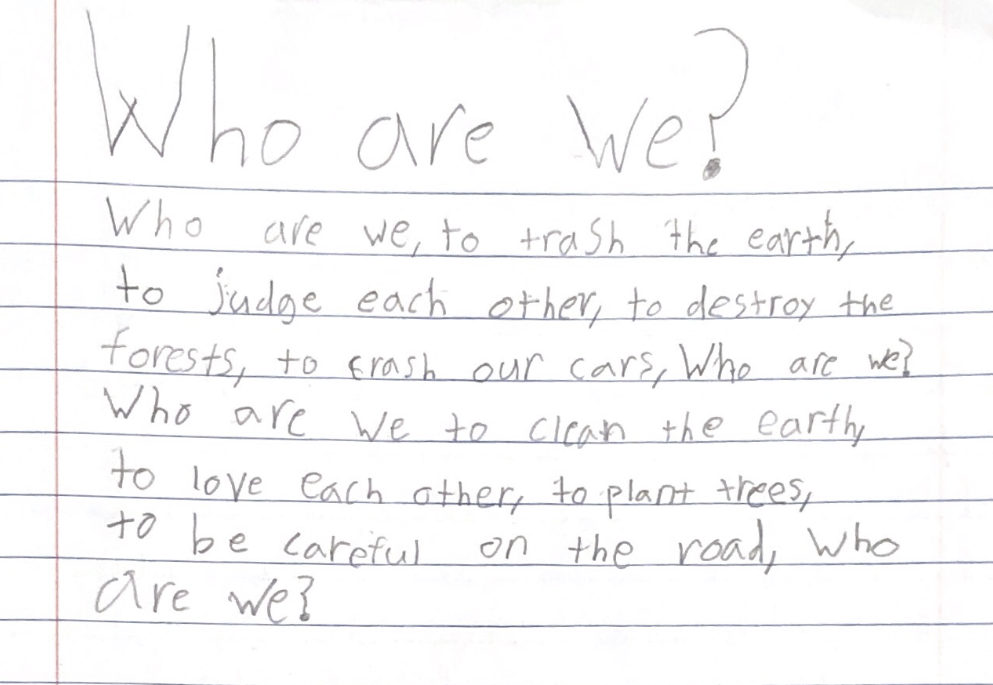 Who are We?
Who are we, to trash the earth,
to judge each other, to destroy the
forests, to crash our cars, Who are we?
Who are We to clean the earth,
to love each other, to plant trees,
to be careful on the road, Who
are we?